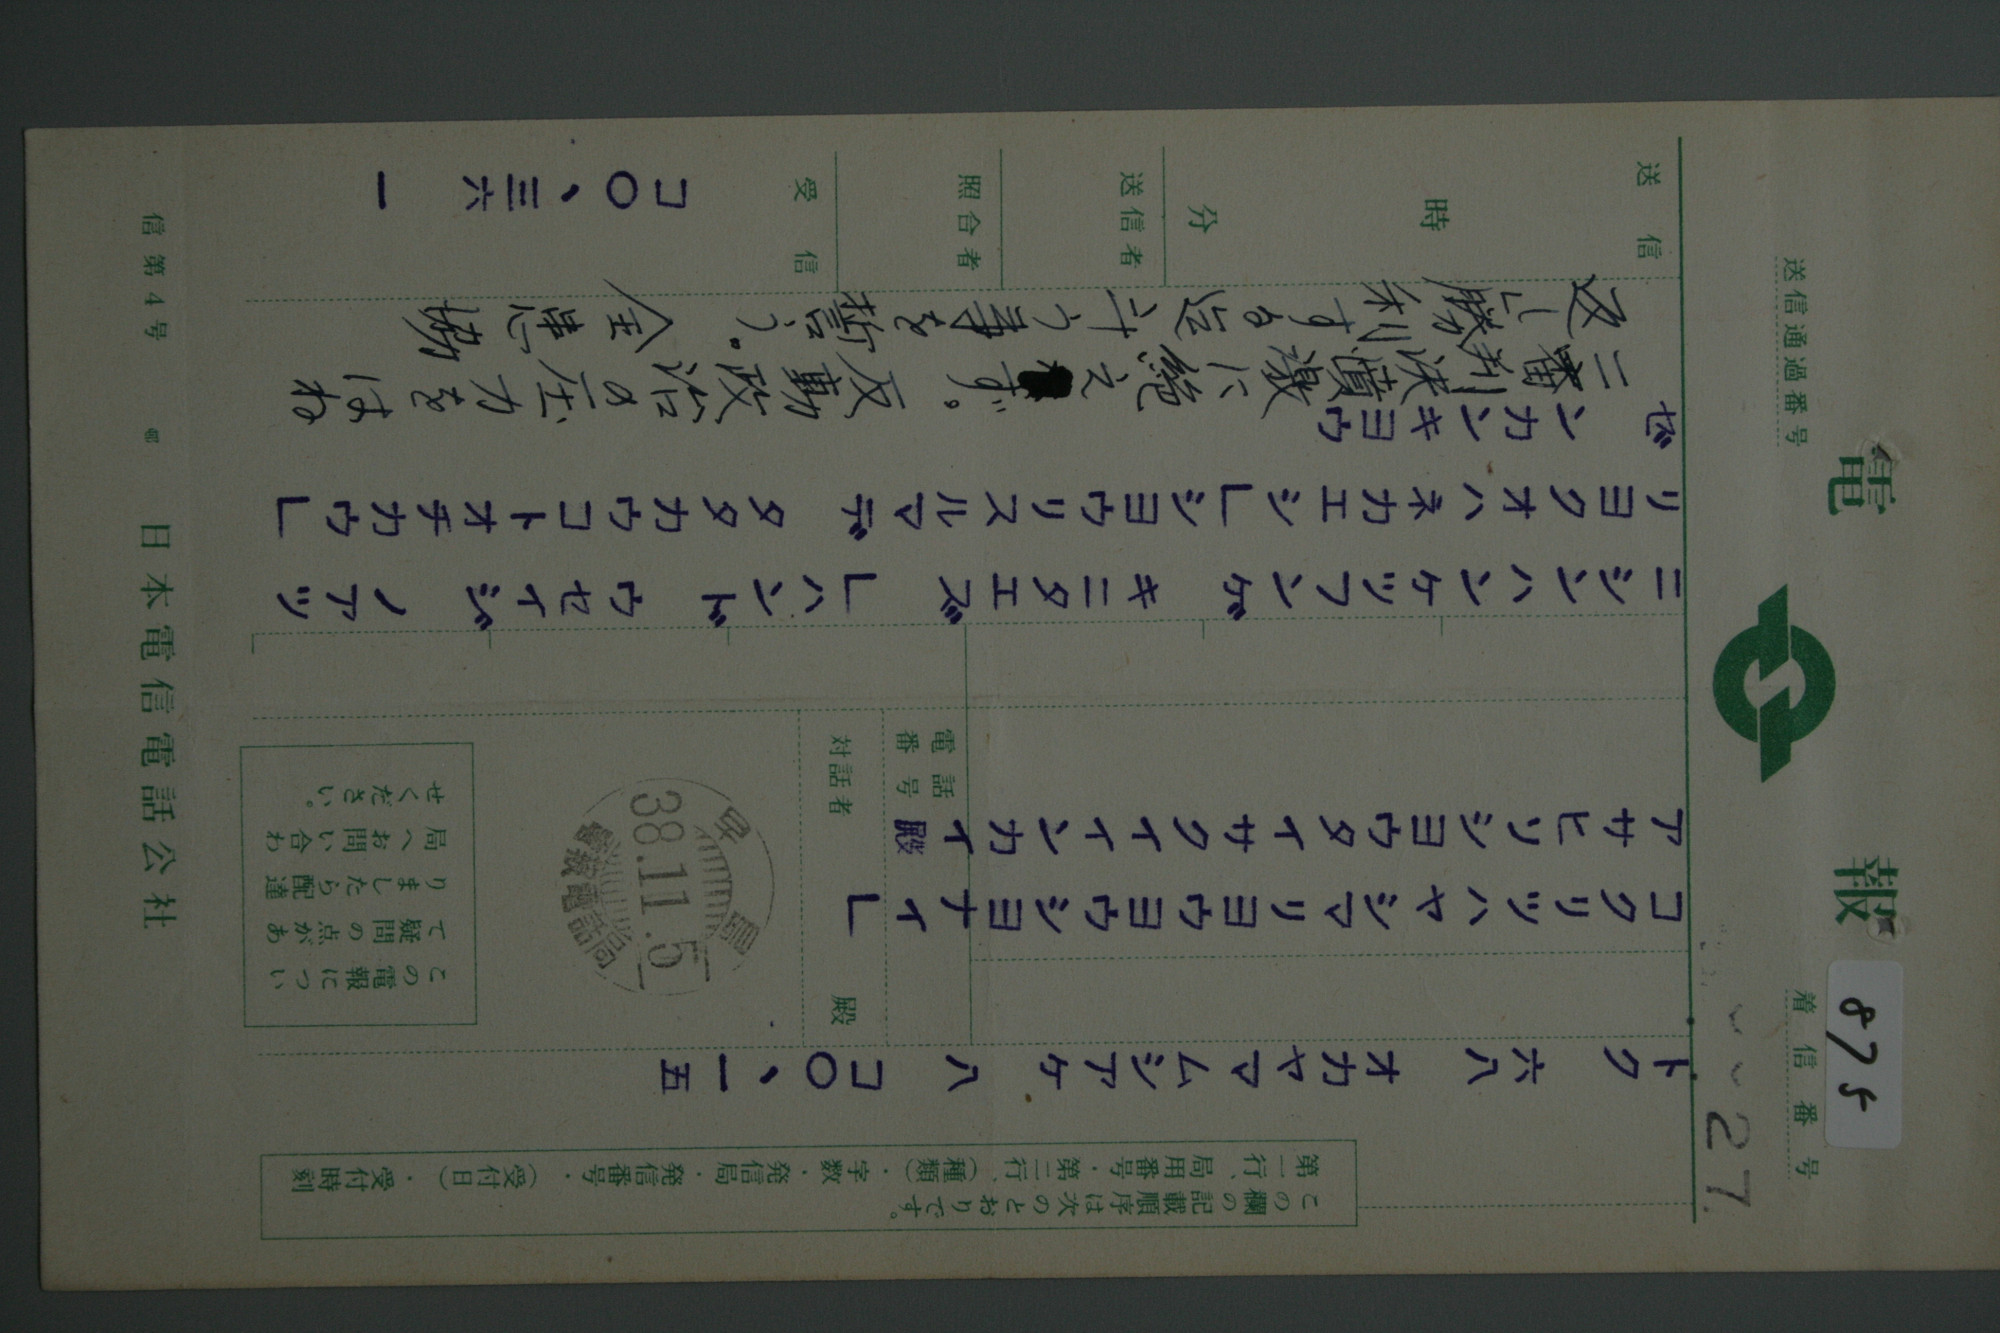 電報
送信通過番号
着信番号
875
27.
この欄の記載順序は次のとおりです。
第一行、局用番号・第二行、(種類)・字数・発信局・発信番号・(受付日)・受付時刻
トク 六八 オカヤマムシアケ 八 コ〇、一五
コクリツハヤシマリヨウヨウシヨナイ」
アサヒソシヨウタイサクイインカイ殿
電話番号
対話者 殿
早島
38.11.5
電報電話局
この電報につい
て疑問の点があ
りましたら配達
局へお問い合わ
せください。
ニシンハンケツフンゲ キニタエズ 」ハンド ウセイジ ノアツ
リヨクオハネカエシ」シヨウリスルマデ タタカウコトオチカウ」
ゼ ンカンキヨウ
二審判決憤激に絶えず。反動政治の圧力をはね
反し勝利する迄斗う事を誓う。全患協
送信 時 分
送信者
照合者
受信
コ〇、三六 一
信第4号
日本電信電話公社